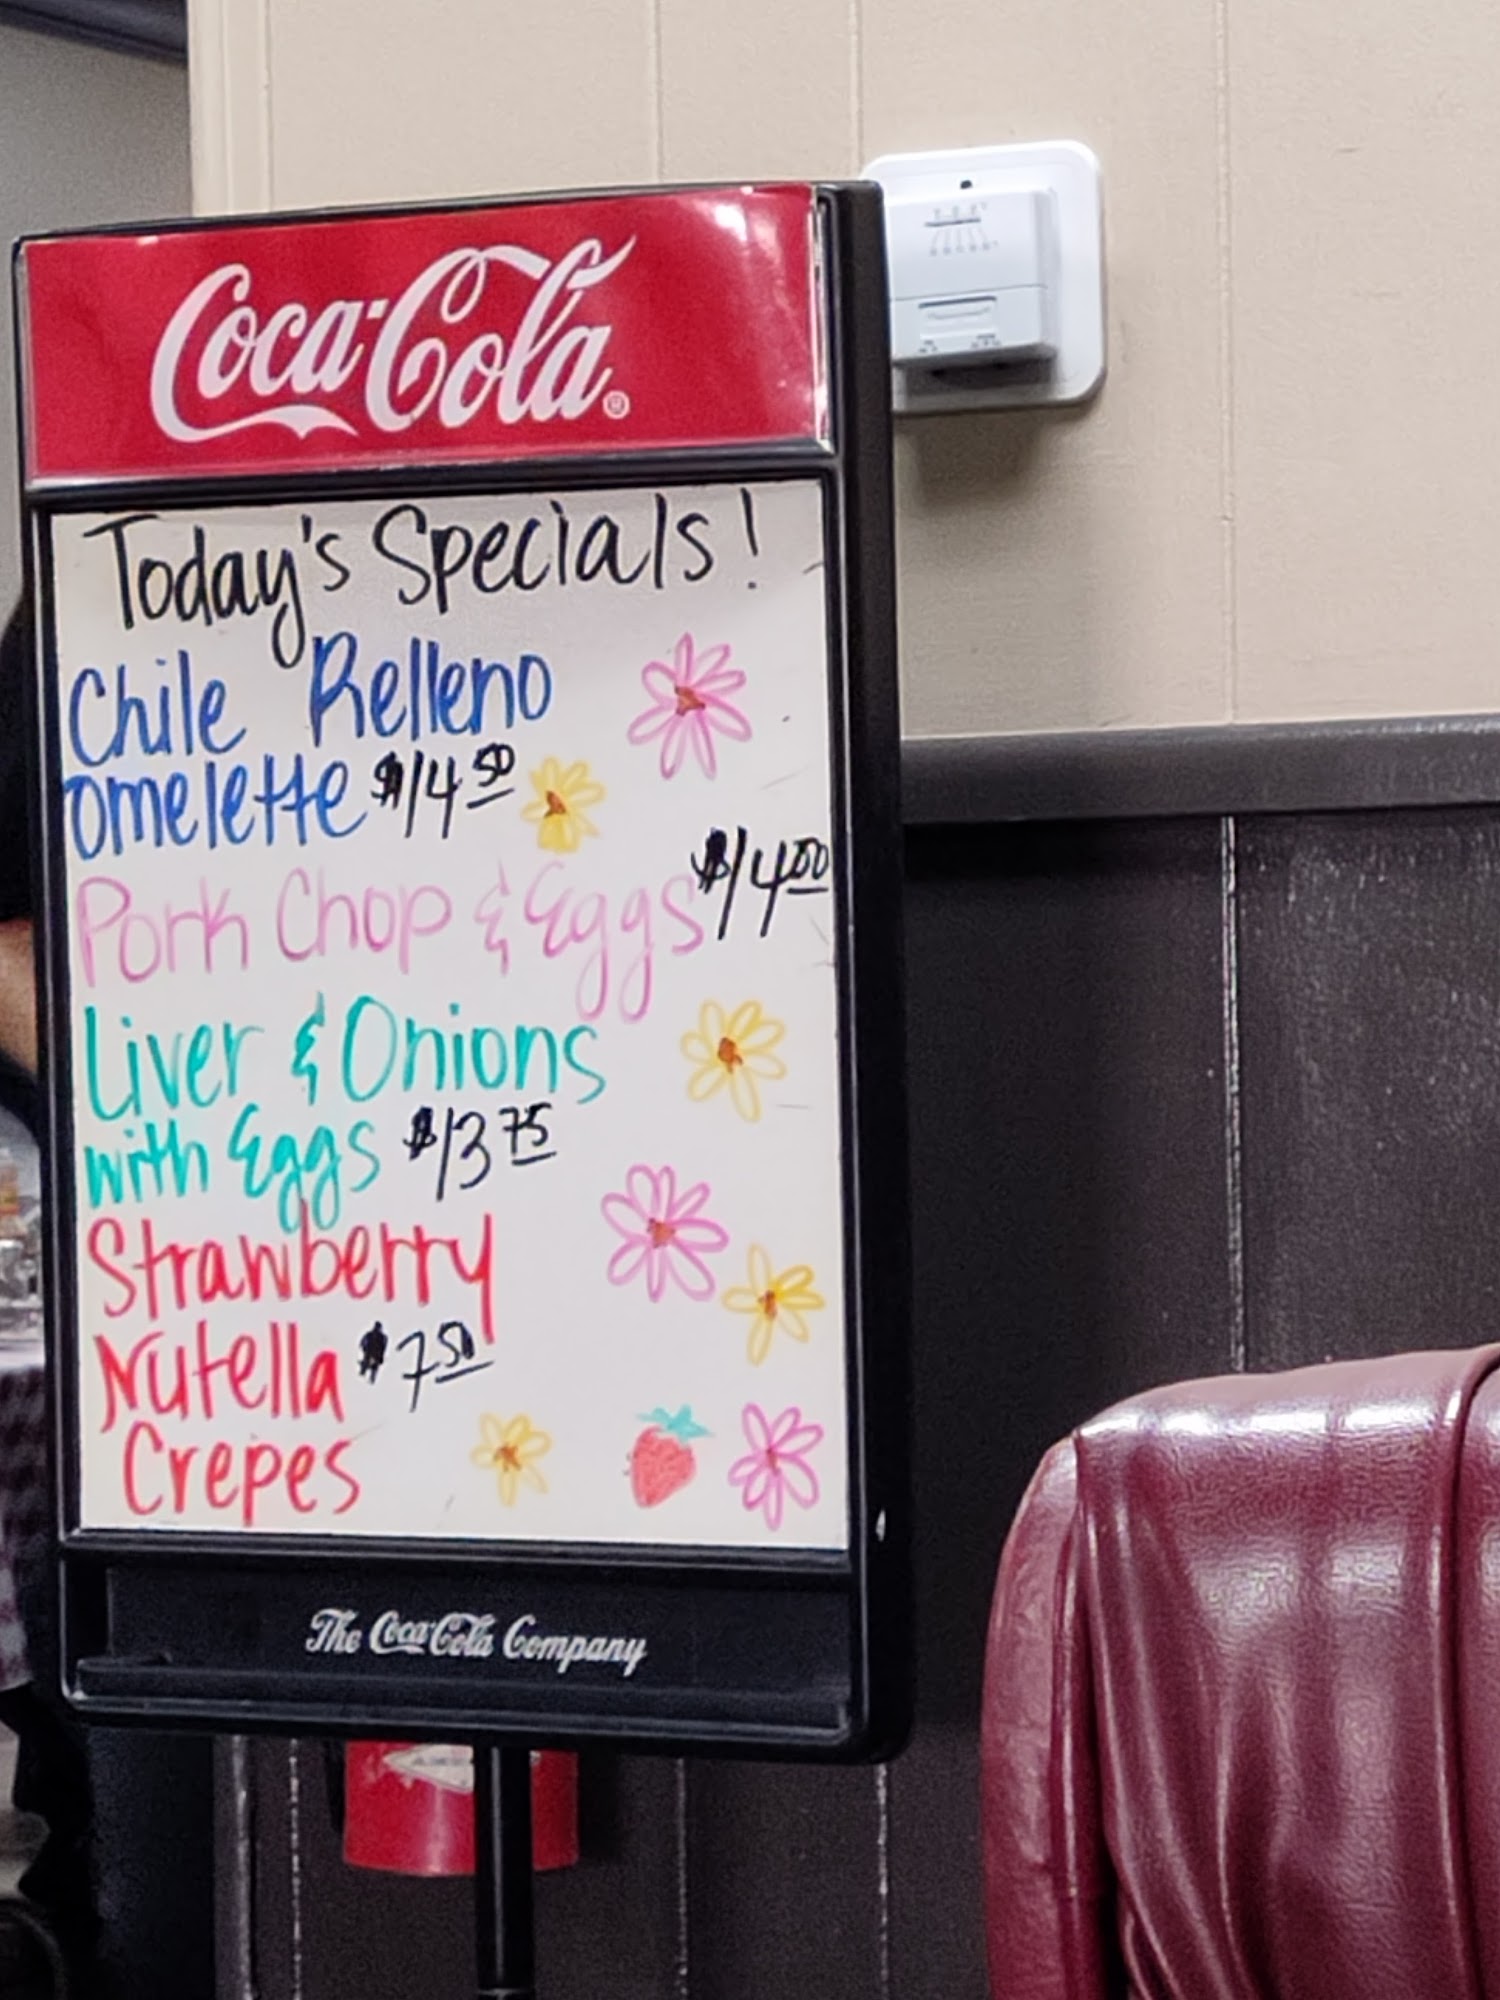 Coca-Cola®
Today's Specials!
Chile Relleno
omelette $14 50
Pork Chop & Eggs $14 00
Liver & Onions
with Eggs $13 75
Strawberry
Nutella $7 50
Crepes
The Coca-Cola Company